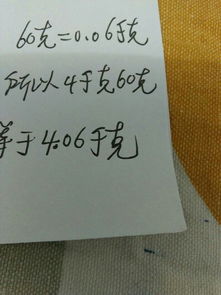 60克=0.06千克
所以4千克60克
等于4.06千克